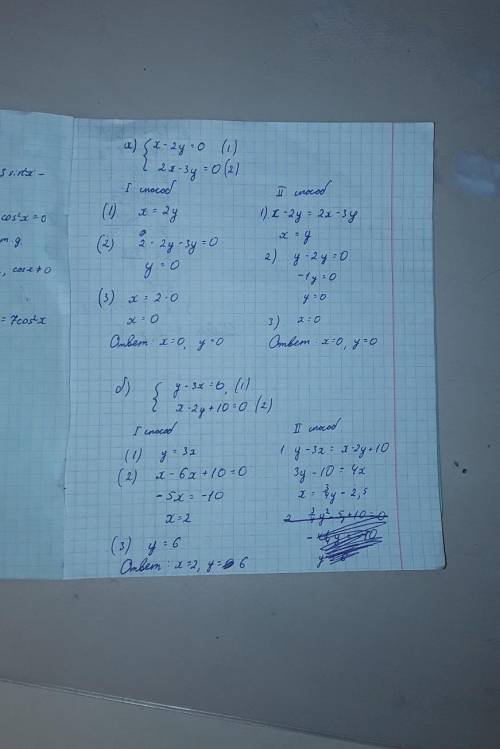 3 sin²x -
cos²x = 0
т.д.
, cosx ≠ 0
= 7cos²x
а) { x - 2y = 0 (1)
2x - 3y = 0 (2)
I способ
(1) x = 2y
(2) 2 · 2y - 3y = 0
y = 0
(3) x = 2 · 0
x = 0
Ответ: x=0, y=0
II способ
1) x - 2y = 2x - 3y
x = y
2) y - 2y = 0
-1y = 0
y = 0
3) x = 0
Ответ: x=0, y=0
б) { y - 3x = 0, (1)
x - 2y + 10 = 0 (2)
I способ
(1) y = 3x
(2) x - 6x + 10 = 0
-5x = -10
x = 2
(3) y = 6
Ответ: x=2, y= 6
II способ
1 y - 3x = x - 2y + 10
3y - 10 = 4x
x = ¾y - 2,5